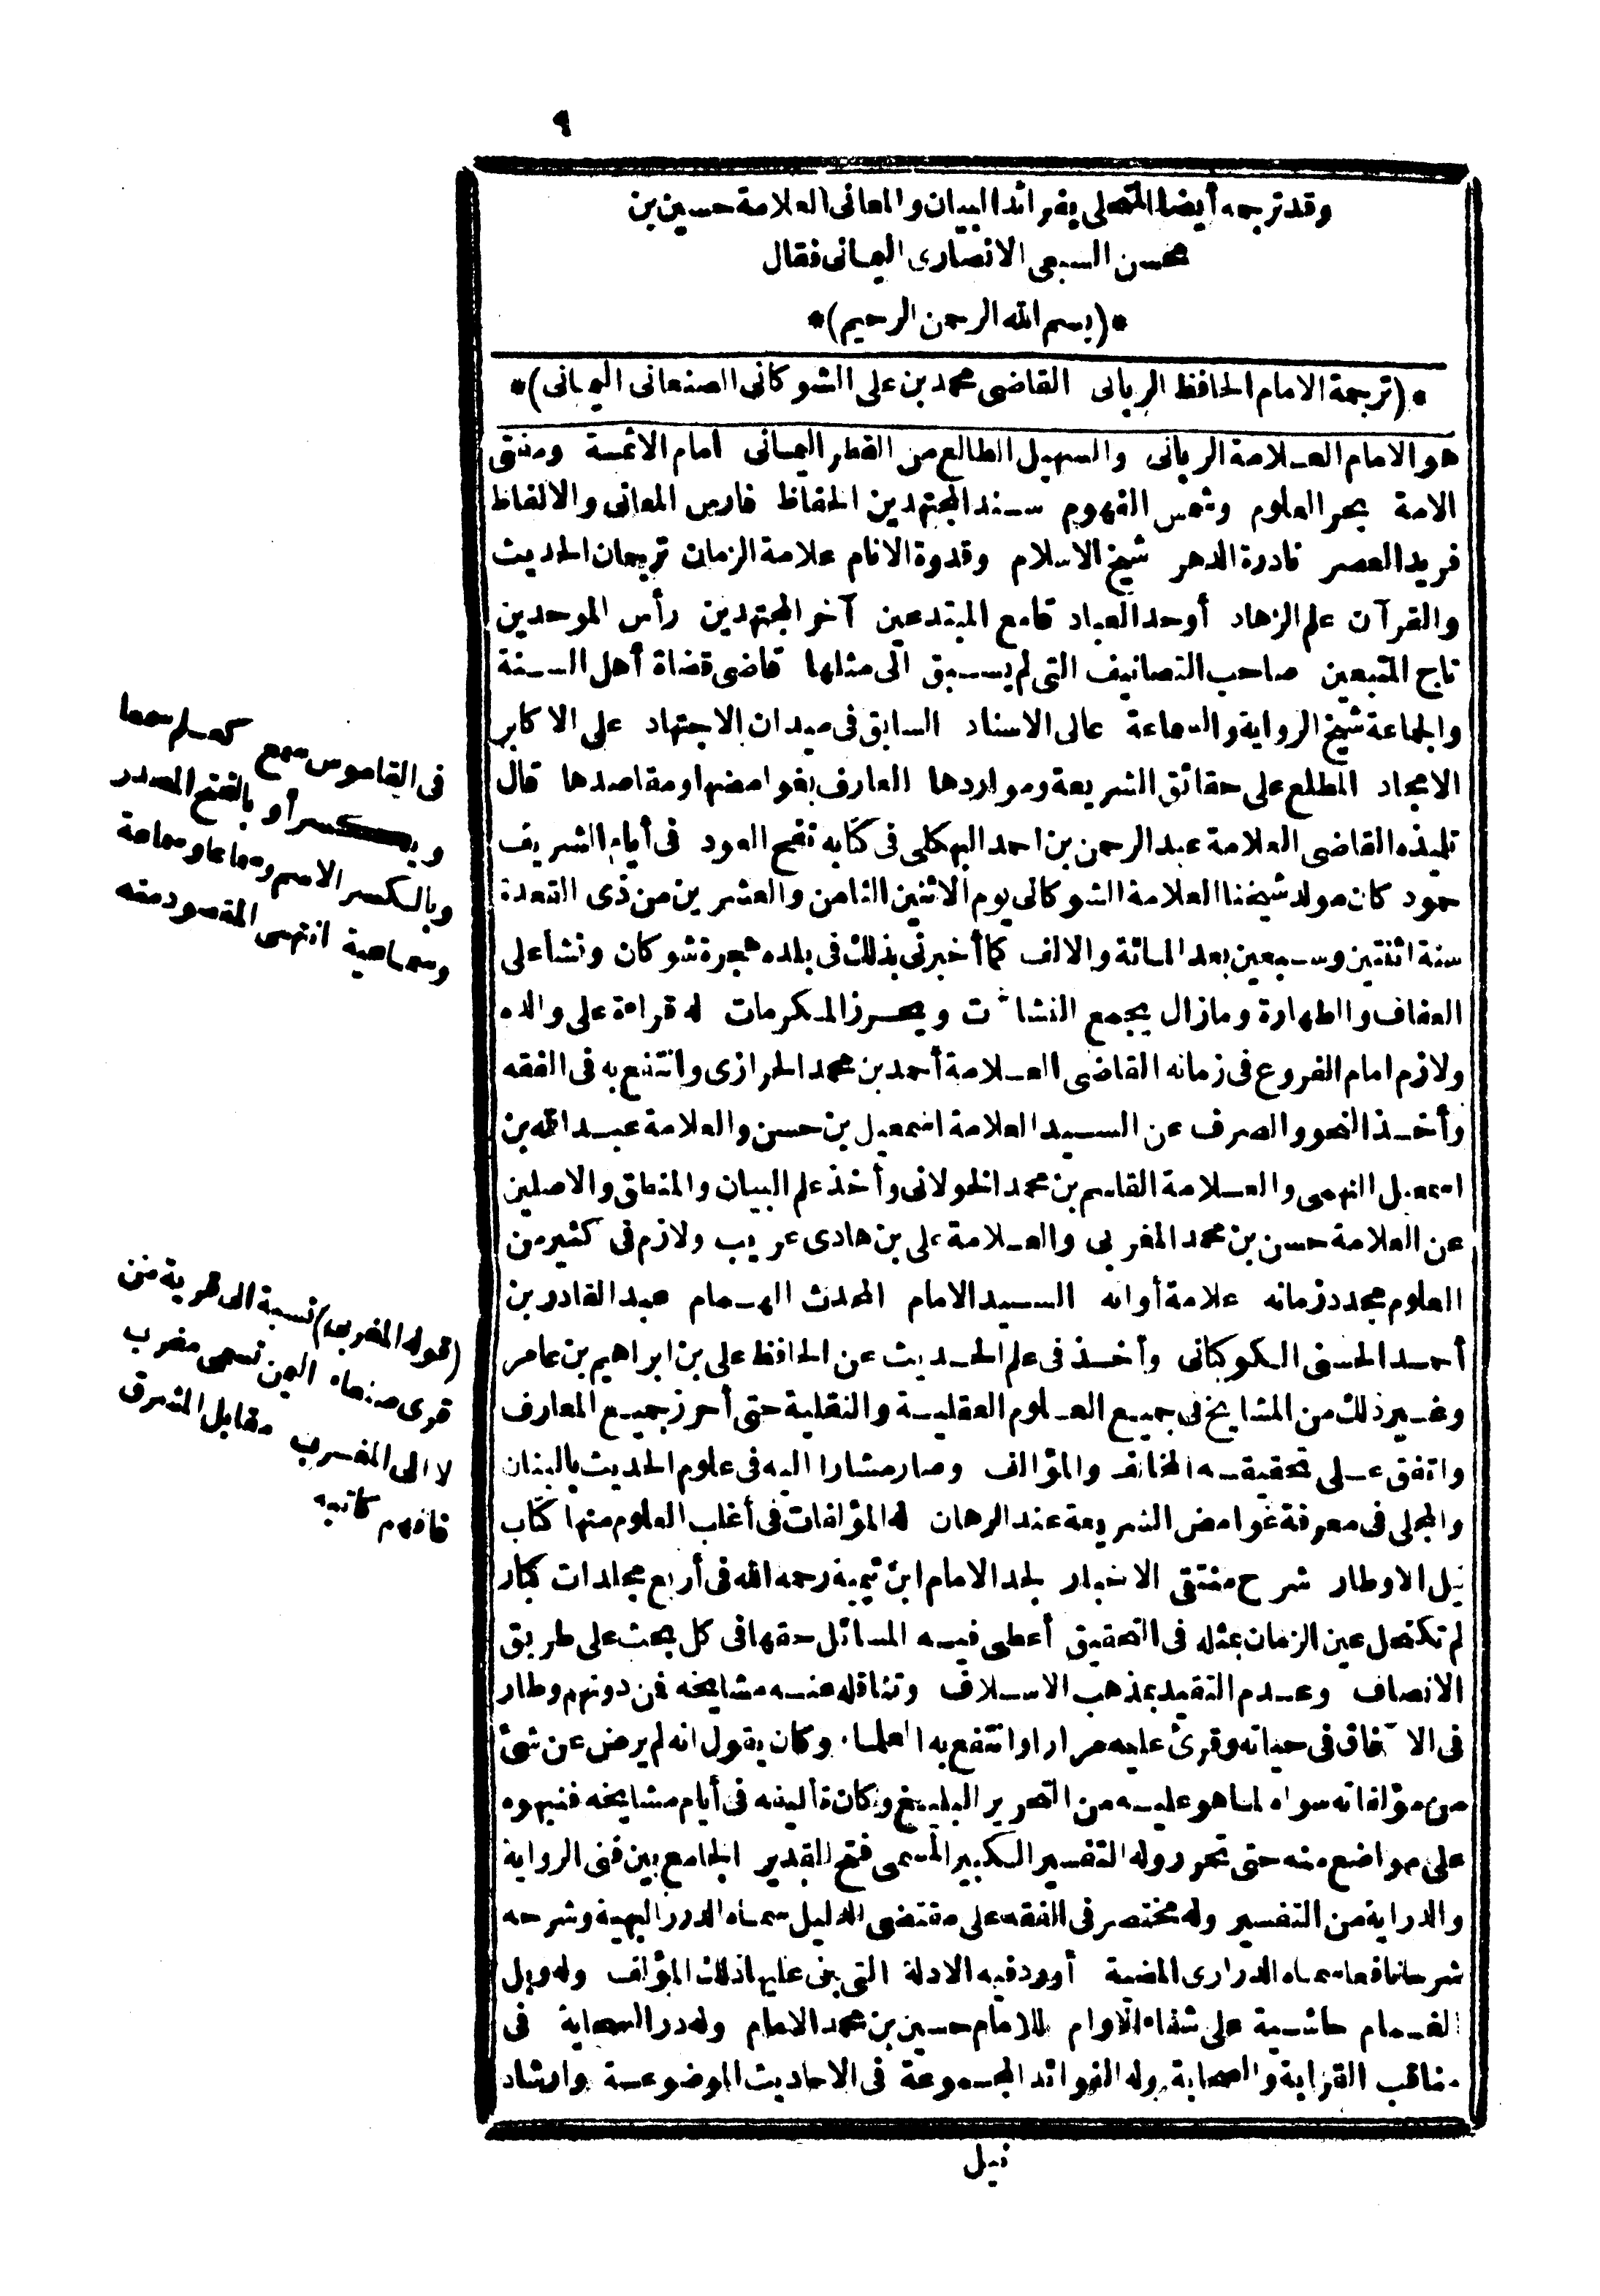 ٩
وقد ترجمه أيضا المتحلى بفرائد البيان والمعانى العلامة حسين بن
محسن السبعى الانصارى اليمانى فقال
*(بسم الله الرحمن الرحيم)*
*(ترجمة الامام الحافظ الربانى القاضى محمد بن على الشوكانى الصنعانى اليمانى)*
هو الامام العلامة الربانى والسهيل الطالع من القطر اليمانى امام الائمة ومفتى
الامة بحر العلوم وشمس الفهوم سند المجتهدين الحفاظ فارس المعانى والالفاظ
فريد العصر نادرة الدهر شيخ الاسلام وقدوة الانام علامة الزمان ترجمان الحديث
والقرآن علم الزهاد أوحد العباد قامع المبتدعين آخر المجتهدين رأس الموحدين
تاج المتبعين صاحب التصانيف التى لم يسبق الى مثلها قاضى قضاة أهل السنة
والجماعة شيخ الرواية والسماعة عالى الاسناد السابق فى ميدان الاجتهاد على الاكابر
الامجاد المطلع على حقائق الشريعة ومواردها العارف بغوامضها ومقاصدها قال
تلميذه القاضى العلامة عبد الرحمن بن احمد البهكلى فى كتابه نفح العود فى أيام الشريف
حمود كان مولد شيخنا العلامة الشوكانى يوم الاثنين الثامن والعشرين من ذى القعدة
سنة اثنتين وسبعين بعد المائة والالف كما أخبرنى بذلك فى بلده هجرة شوكان ونشأ على
العفاف والطهارة ومازال يجمع النشات ويحرز المكرمات له قراءة على والده
ولازم امام الفروع فى زمانه القاضى العلامة أحمد بن محمد الحرازى وانتفع به فى الفقه
وأخذ النحو والصرف عن السيد العلامة اسمعيل بن حسن والعلامة عبد الله بن
اسمعيل النهمى والعلامة القاسم بن محمد الخولانى وأخذ علم البيان والمنطق والاصلين
عن العلامة حسن بن محمد المغربى والعلامة على بن هادى عريب ولازم فى كثير من
العلوم مجدد زمانه علامة أوانه السيد الامام المحدث الهمام عبد القادر بن
أحمد الحسنى الكوكبانى وأخذ فى علم الحديث عن الحافظ على بن ابراهيم بن عامر
وغير ذلك من المشايخ فى جميع العلوم العقلية والنقلية حتى أحرز جميع المعارف
واتفق على تحقيقه المخالف والمؤالف وصار مشارا اليه فى علوم الحديث بالبنان
والمجلى فى معرفة غوامض الشريعة عند الرهان له المؤلفات فى أغلب العلوم منها كتاب
نيل الاوطار شرح منتقى الاخبار لجد الامام ابن تيمية رحمه الله فى أربع مجلدات كبار
لم تكتحل عين الزمان بمثله فى التحقيق أعطى فيه المسائل حقها فى كل بحث على طريق
الانصاف وعدم التقيد بمذهب الاسلاف وتناقله عنه مشايخه فمن دونهم وطار
فى الآفاق فى حياته وقرئ عليه مرارا وانتفع به العلماء وكان يقول انه لم يرض عن شئ
من مؤلفاته سواه لما هو عليه من التحرير البليغ وكان تأليفه فى أيام مشايخه فنبهوه
على مواضع منه حتى تحرر وله التفسير الكبير المسمى فتح القدير الجامع بين فنى الرواية
والدراية من التفسير وله مختصر فى الفقه على مقتضى الدليل سماه الدرر البهية وشرحه
شرحا نافعا سماه الدرارى المضية أورد فيه الادلة التى بنى عليها ذلك المؤلف وله وبل
الغمام حاشية على شفاء الاوام للامام حسين بن محمد الامام وله در السحابة فى
مناقب القرابة والصحابة وله الفوائد المجموعة فى الاحاديث الموضوعة وارشاد
نيل
فى القاموس سمع كعلم سمعا
ويكسر أو بالفتح المصدر
وبالكسر الاسم وسماعا وسماعة
وسماعية انتهى المقصود منه
(قوله المغربى) نسبة الى قرية من
قرى صنعاء اليمن تسمى مغرب
لا الى المغرب مقابل المشرق
فافهم كاتبه